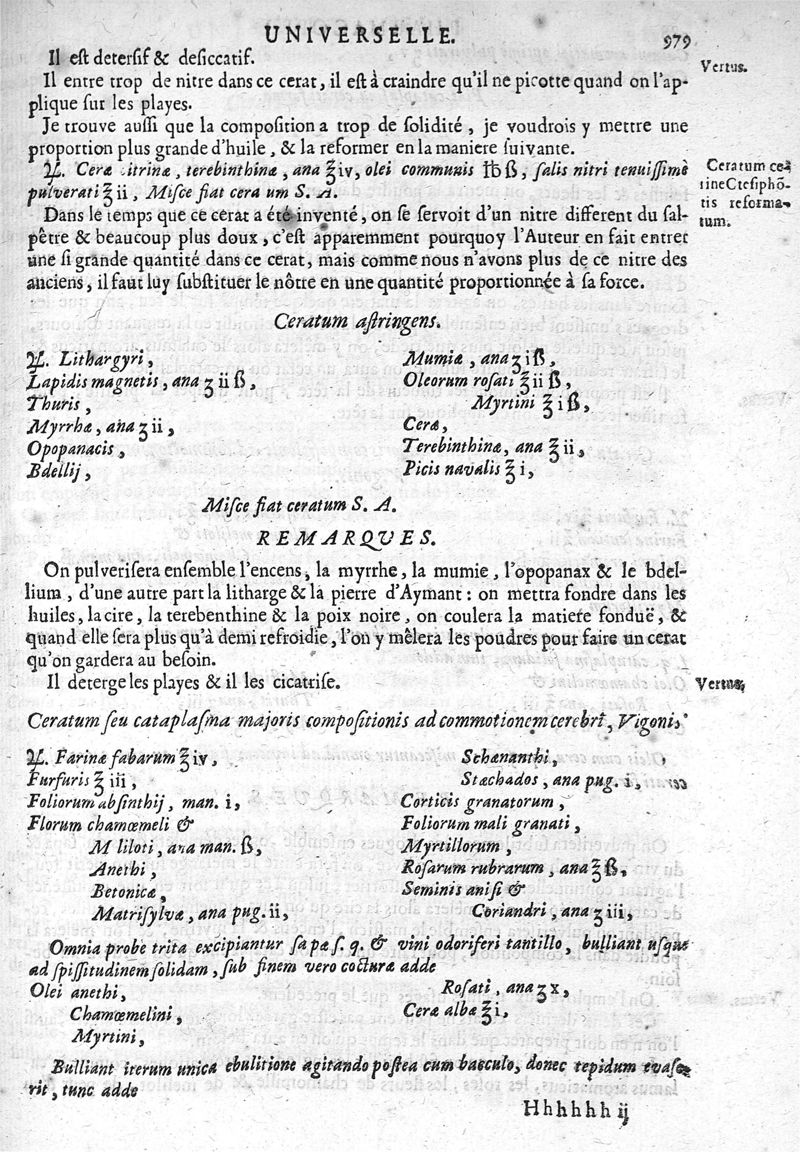 UNIVERSELLE. 979
Il est detersif & desiccatif.
Vertus.
Il entre trop de nitre dans ce cerat, il est à craindre qu'il ne picotte quand on l'ap-
plique sur les playes.
Je trouve aussi que la composition a trop de solidité, je voudrois y mettre une
proportion plus grande d'huile, & la reformer en la maniere suivante.
℞. Ceræ citrinæ, terebinthinæ, ana ℥iv, olei communis ℔ß, salis nitri tenuissimè
pulverati ℥ii, Misce fiat cera um S. A.
Ceratum ce-
rineCtesiphõ-
tis reforma-
tum.
Dans le temps que ce cerat a été inventé, on se servoit d'un nitre different du sal-
pêtre & beaucoup plus doux, c'est apparemment pourquoy l'Auteur en fait entrer
une si grande quantité dans ce cerat, mais comme nous n'avons plus de ce nitre des
anciens, il faut luy substituer le nôtre en une quantité proportionnée à sa force.
Ceratum astringens.
℞. Lithargyri,
Lapidis magnetis, ana ʒiiß,
Thuris,
Myrrhæ, ana ʒii,
Opopanacis,
Bdellij,
Mumiæ, ana ʒiß,
Oleorum rosati ℥iiß,
Myrtini ℥iß,
Ceræ,
Terebinthinæ, ana ℥ii,
Picis navalis ℥i,
Misce fiat ceratum S. A.
REMARQUES.
On pulverisera ensemble l'encens, la myrrhe, la mumie, l'opopanax & le bdel-
lium, d'une autre part la litharge & la pierre d'Aymant: on mettra fondre dans les
huiles, la cire, la terebenthine & la poix noire, on coulera la matiere fonduë, &
quand elle sera plus qu'à demi refroidie, l'on y mêlera les poudres pour faire un cerat
qu'on gardera au besoin.
Il deterge les playes & il les cicatrise.
Vertus.
Ceratum seu cataplasma majoris compositionis ad commotionem cerebri, Vigonis.
℞. Farinæ fabarum ℥iv,
Furfuris ℥iii,
Foliorum absinthij, man. i,
Florum chamœmeli &
M liloti, ana man. ß,
Anethi,
Betonicæ,
Matrisylvæ, ana pug. ii,
Schænanthi,
Stæchados, ana pug. i,
Corticis granatorum,
Foliorum mali granati,
Myrtillorum,
Rosarum rubrarum, ana ℥ß,
Seminis anisi &
Coriandri, ana ʒiii,
Omnia probe trita excipiantur sapæ s. q. & vini odoriferi tantillo, bulliant usque
ad spissitudinem solidam, sub finem vero cocturæ adde
Olei anethi,
Chamœmelini,
Myrtini,
Rosati, ana ʒx,
Ceræ albæ ℥i,
Bulliant iterum unica ebulitione agitando postea cum baculo, donec tepidum evase-
rit, tunc adde
Hhhhhh ij